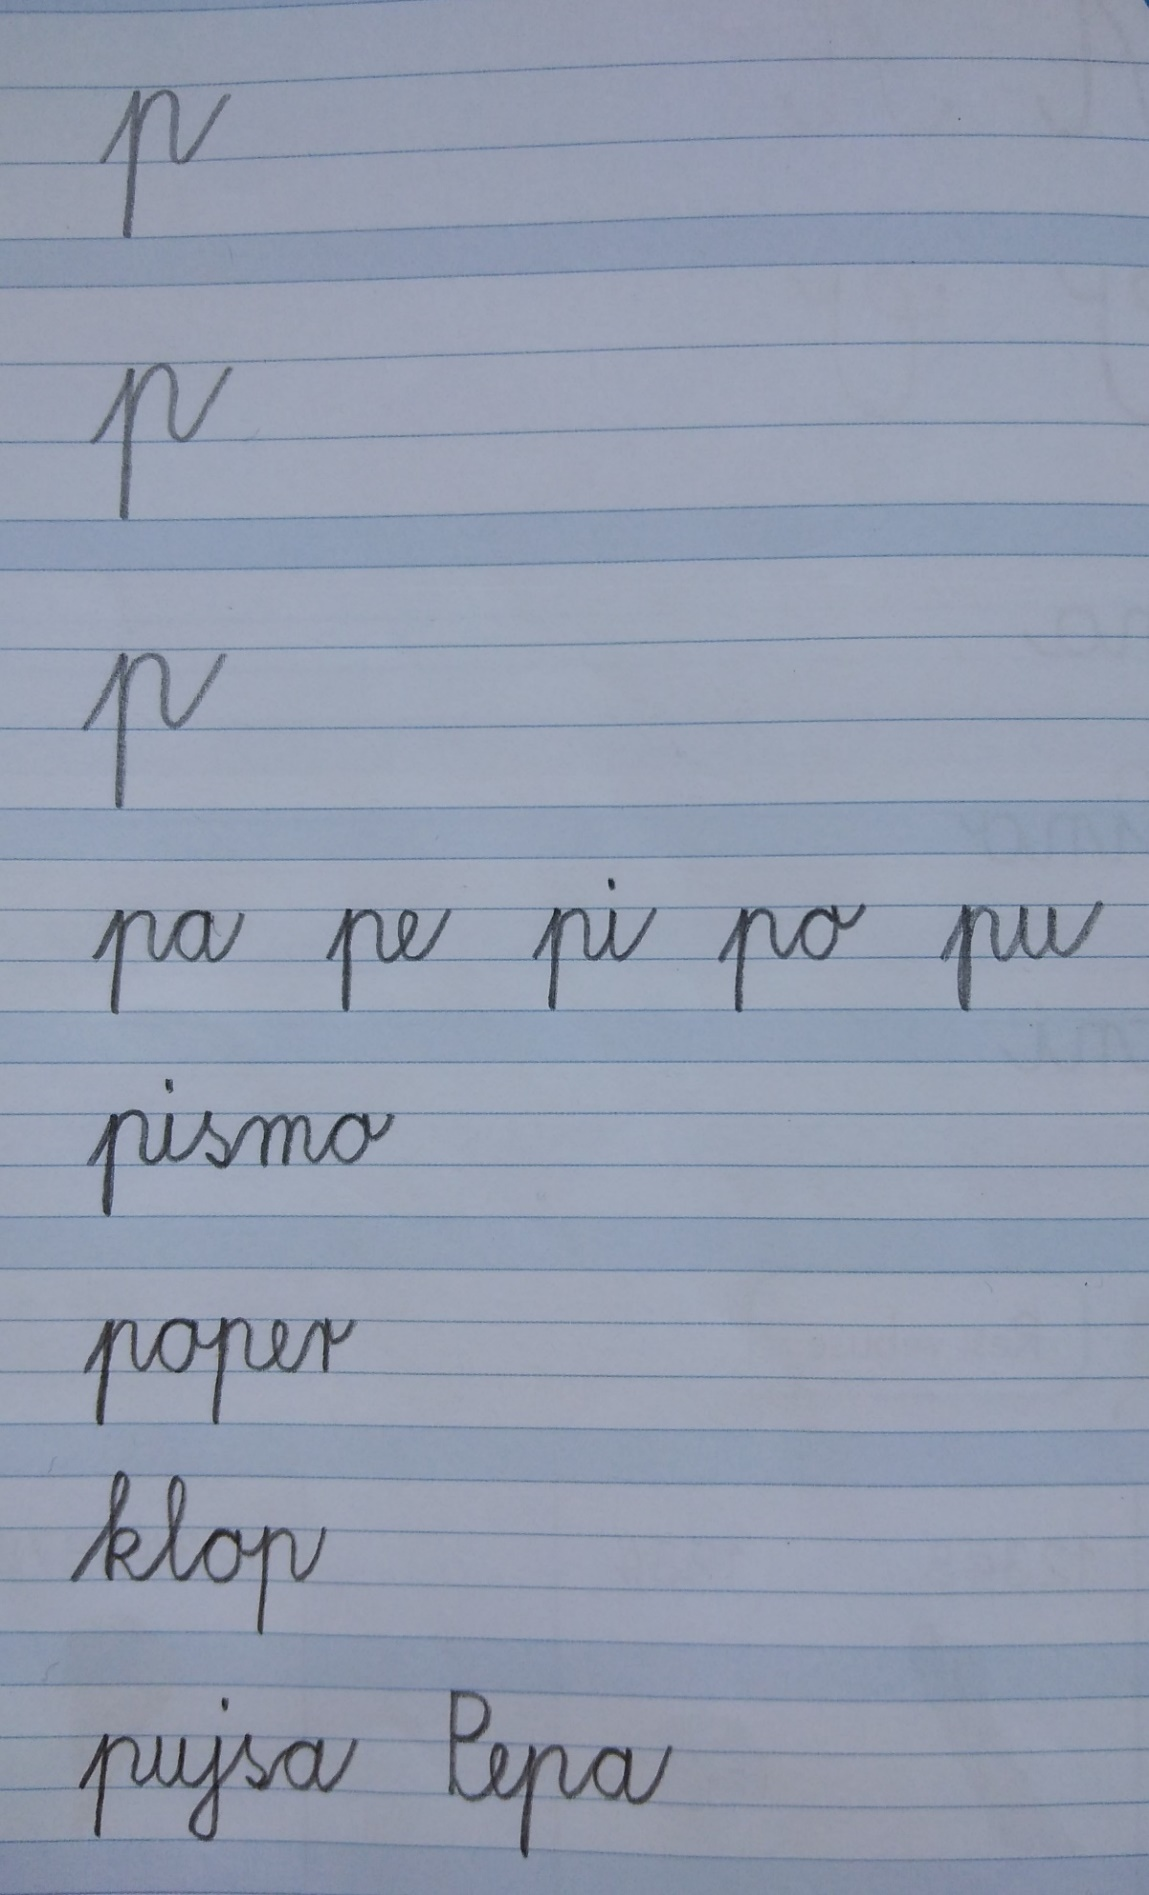 p
p
p
pa pe pi po pu
pismo
poper
klop
pujsa Pepa